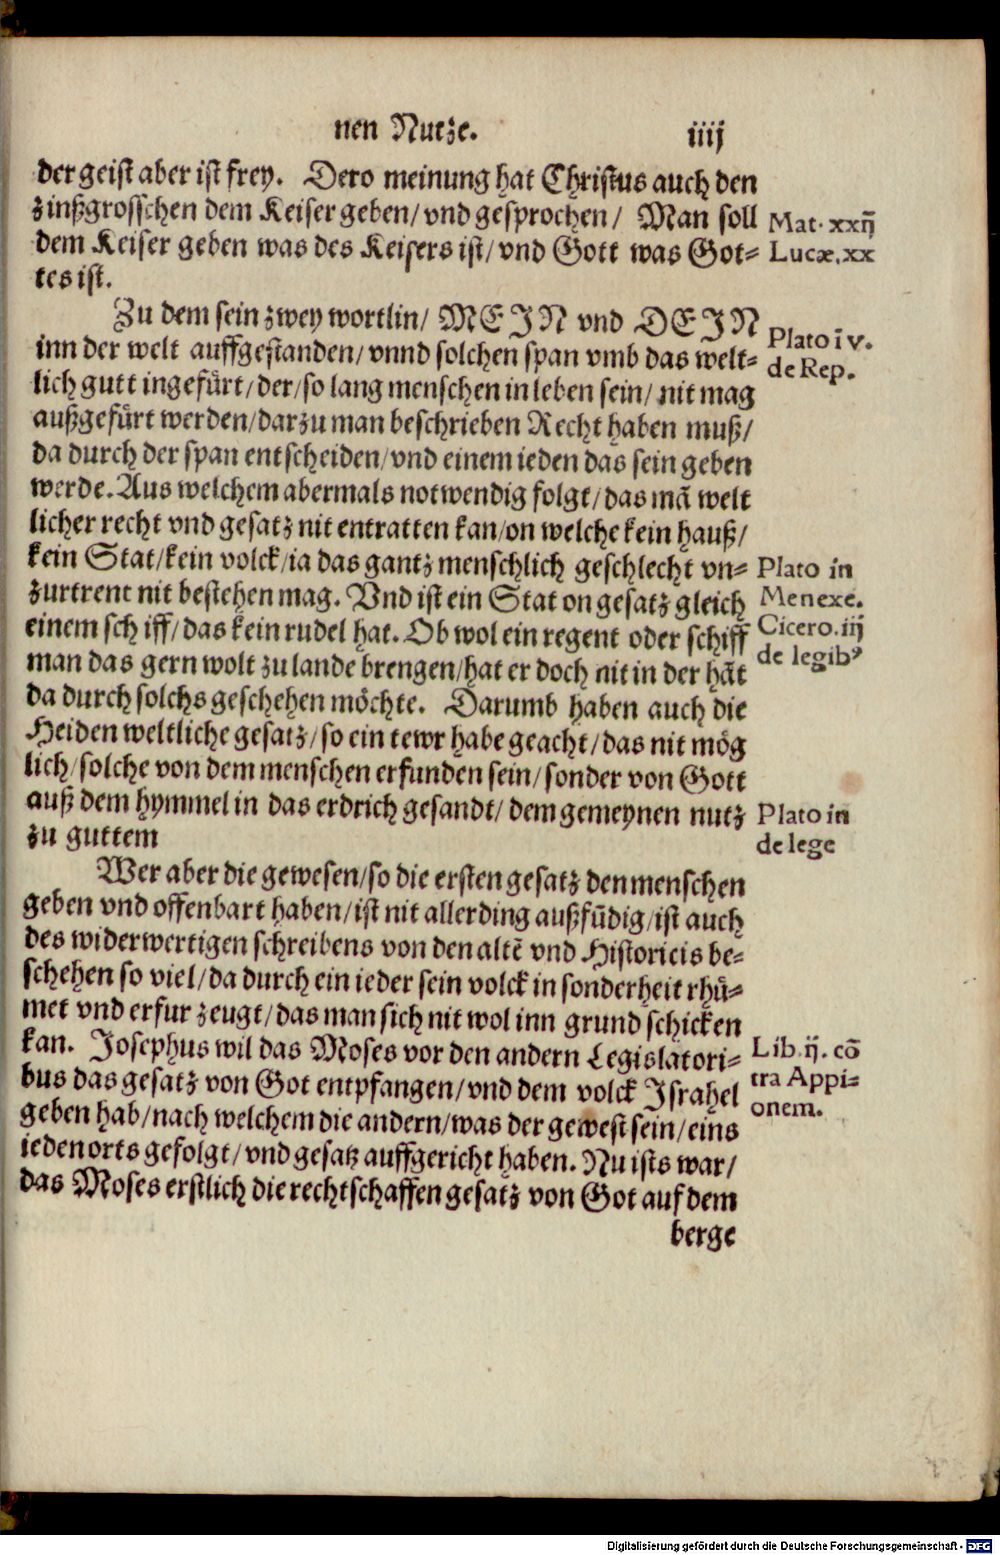 nen Nutze. iiij
der geist aber ist frey. Dero meinung hat Christus auch den
zinßgrosschen dem Keiser geben/ vnd gesprochen/ Man soll
Mat. xxij
dem Keiser geben was des Keisers ist/ vnd Gott was Got⸗
Lucæ. xx
tes ist.
Zu dem sein zwey wortlin/ MEIN vnd DEIN
Plato iv.
inn der welt auffgestanden/ vnnd solchen span vmb das welt⸗
de Rep.
lich gutt ingefuͤrt/ der/ so lang menschen in leben sein/ nit mag
außgefuͤrt werden/ darzu man beschrieben Recht haben muß/
da durch der span entscheiden/ vnd einem ieden das sein geben
werde. Aus welchem abermals notwendig folgt/ das mã welt
licher recht vnd gesatz nit entratten kan/ on welche kein hauß/
kein Stat/ kein volck/ ia das gantz menschlich geschlecht vn⸗
Plato in
zurtrent nit bestehen mag. Vnd ist ein Stat on gesatz gleich
Menexe.
einem schiff/ das kein rudel hat. Ob wol ein regent oder schiff
Cicero. iij
man das gern wolt zu lande brengen/ hat er doch nit in der hãt
de legibꝰ
da durch solchs geschehen moͤchte. Darumb haben auch die
Heiden weltliche gesatz/ so ein tewr habe geacht/ das nit moͤg
lich/ solche von dem menschen erfunden sein/ sonder von Gott
auß dem hymmel in das erdrich gesandt/ dem gemeynen nutz
Plato in
zu guttem
de lege
Wer aber die gewesen/ so die ersten gesatz den menschen
geben vnd offenbart haben/ ist nit allerding außfũdig/ ist auch
des widerwertigen schreibens von den altẽ vnd Historicis be⸗
schehen so viel/ da durch ein ieder sein volck in sonderheit rhuͤ⸗
met vnd erfur zeugt/ das man sich nit wol inn grund schicken
kan. Josephus wil das Moses vor den andern Legislatori⸗
Lib. ij. cõ
bus das gesatz von Got entpfangen/ vnd dem volck Israhel
tra Appi⸗
geben hab/ nach welchem die andern/ was der gewest sein/ eins
onem.
ieden orts gefolgt/ vnd gesatz auffgericht haben. Nu ists war/
das Moses erstlich die rechtschaffen gesatz von Got auf dem
berge
Digitalisierung gefördert durch die Deutsche Forschungsgemeinschaft - DFG